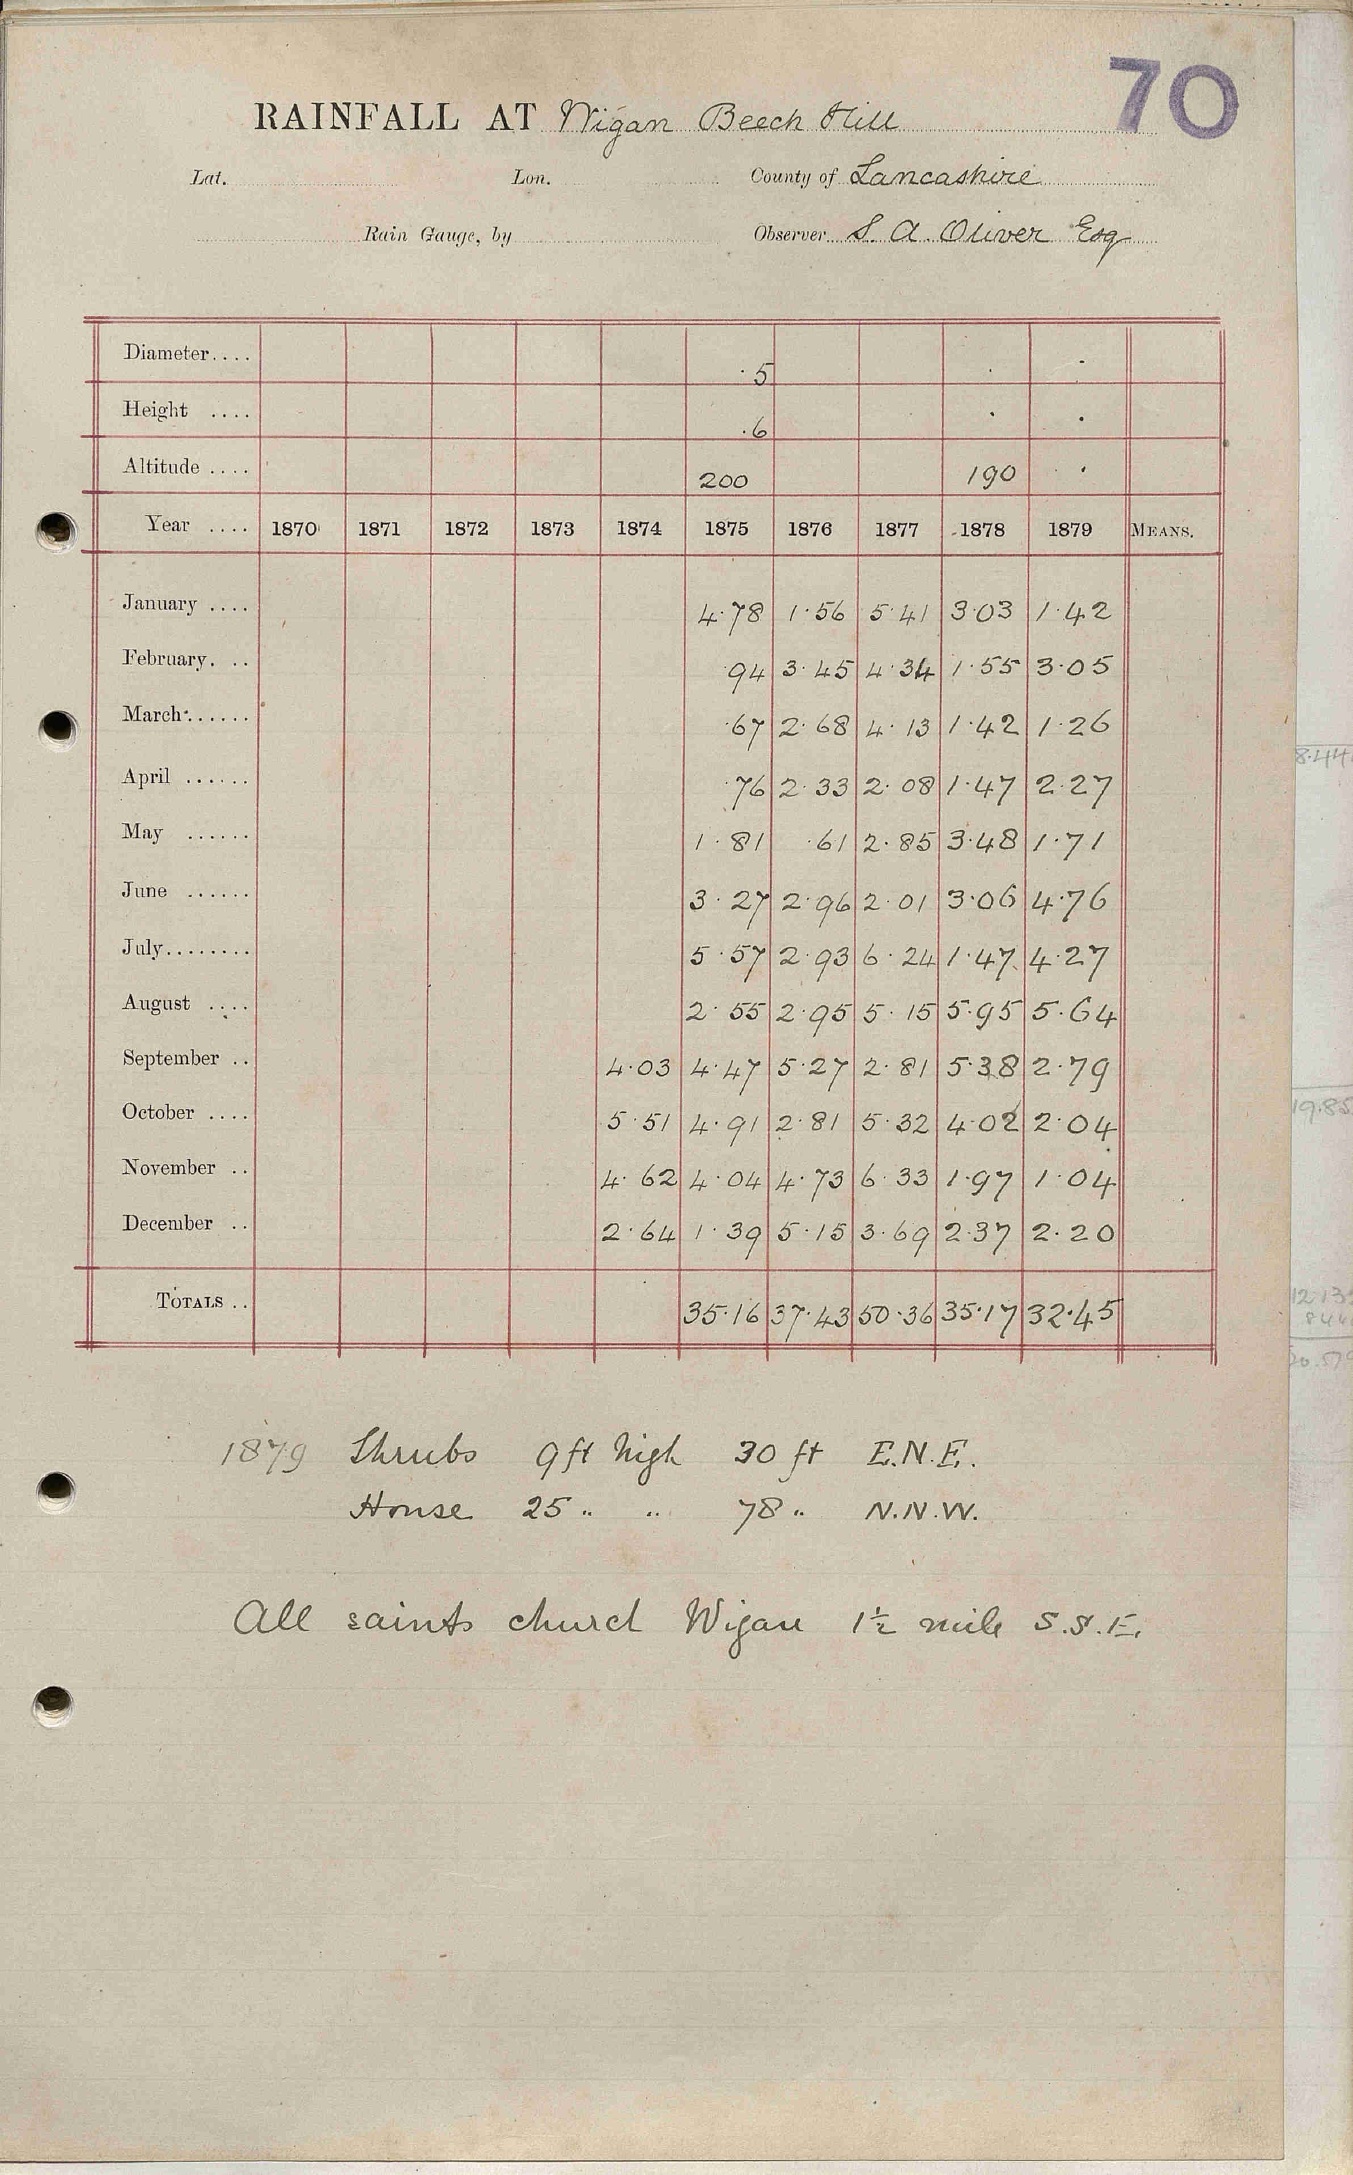 70
RAINFALL AT Wigan Beech Hill
Lat. Lon. County of Lancashire
Rain Gauge, by Observer S. A. Oliver Esq
Diameter.... ·5 · ·
Height .... ·6 · ·
Altitude .... 200 190 ·
Year .... 1870 1871 1872 1873 1874 1875 1876 1877 1878 1879 MEANS.
January .... 4·78 1·56 5·41 3·03 1·42
February. .. ·94 3·45 4·34 1·55 3·05
March...... ·67 2·68 4·13 1·42 1·26
April ...... ·76 2·33 2·08 1·47 2·27
May ...... 1·81 ·61 2·85 3·48 1·71
June ...... 3·27 2·96 2·01 3·06 4·76
July........ 5·57 2·93 6·24 1·47 4·27
August .... 2·55 2·95 5·15 5·95 5·64
September .. 4·03 4·47 5·27 2·81 5·38 2·79
October .... 5·51 4·91 2·81 5·32 4·02 2·04
November .. 4·62 4·04 4·73 6·33 1·97 1·04
December .. 2·64 1·39 5·15 3·69 2·37 2·20
TOTALS .. 35·16 37·43 50·36 35·17 32·45
1879 Shrubs 9 ft high 30 ft E.N.E.
House 25 " " 78 " N.N.W.
All saints church Wigan 1½ mile S.S.E.